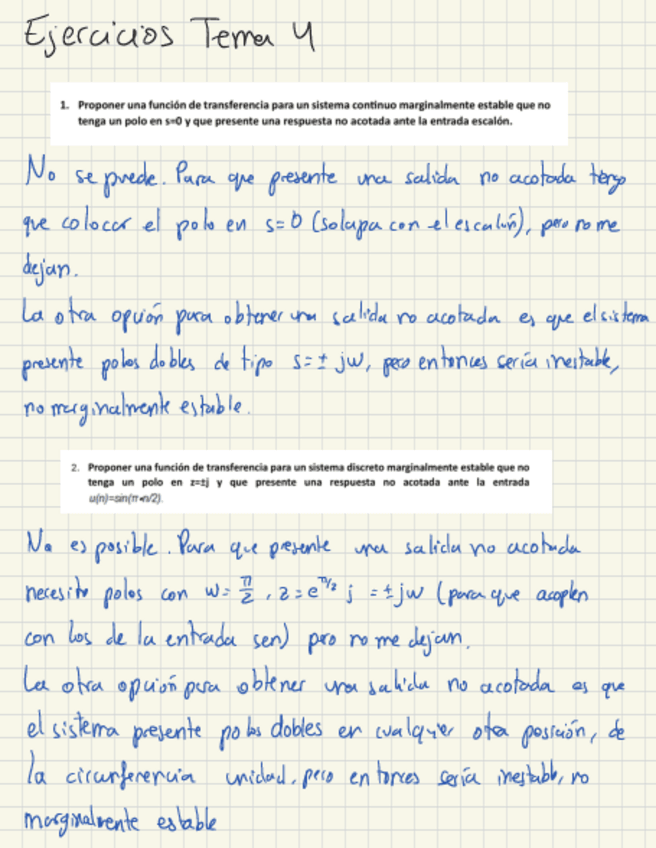 Ejercicios Tema 4
1. Proponer una función de transferencia para un sistema continuo marginalmente estable que no
tenga un polo en s=0 y que presente una respuesta no acotada ante la entrada escalón.
No se puede. Para que presente una salida no acotada tengo
que colocar el polo en s=0 (solapa con el escalón), pero no me
dejan.
La otra opción para obtener una salida no acotada es que el sistema
presente polos dobles de tipo s=± jw, pero entonces sería inestable,
no marginalmente estable.
2. Proponer una función de transferencia para un sistema discreto marginalmente estable que no
tenga un polo en z=±j y que presente una respuesta no acotada ante la entrada
u(n)=sin(π*n/2).
No es posible. Para que presente una salida no acotada
necesito polos con w= π/2, z=e^π/2 j = ±jw (para que acoplen
con los de la entrada sen) pero no me dejan.
La otra opción para obtener una salida no acotada es que
el sistema presente polos dobles en cualquier otra posición, de
la circunferencia unidad, pero entonces sería inestable, no
marginalmente estable